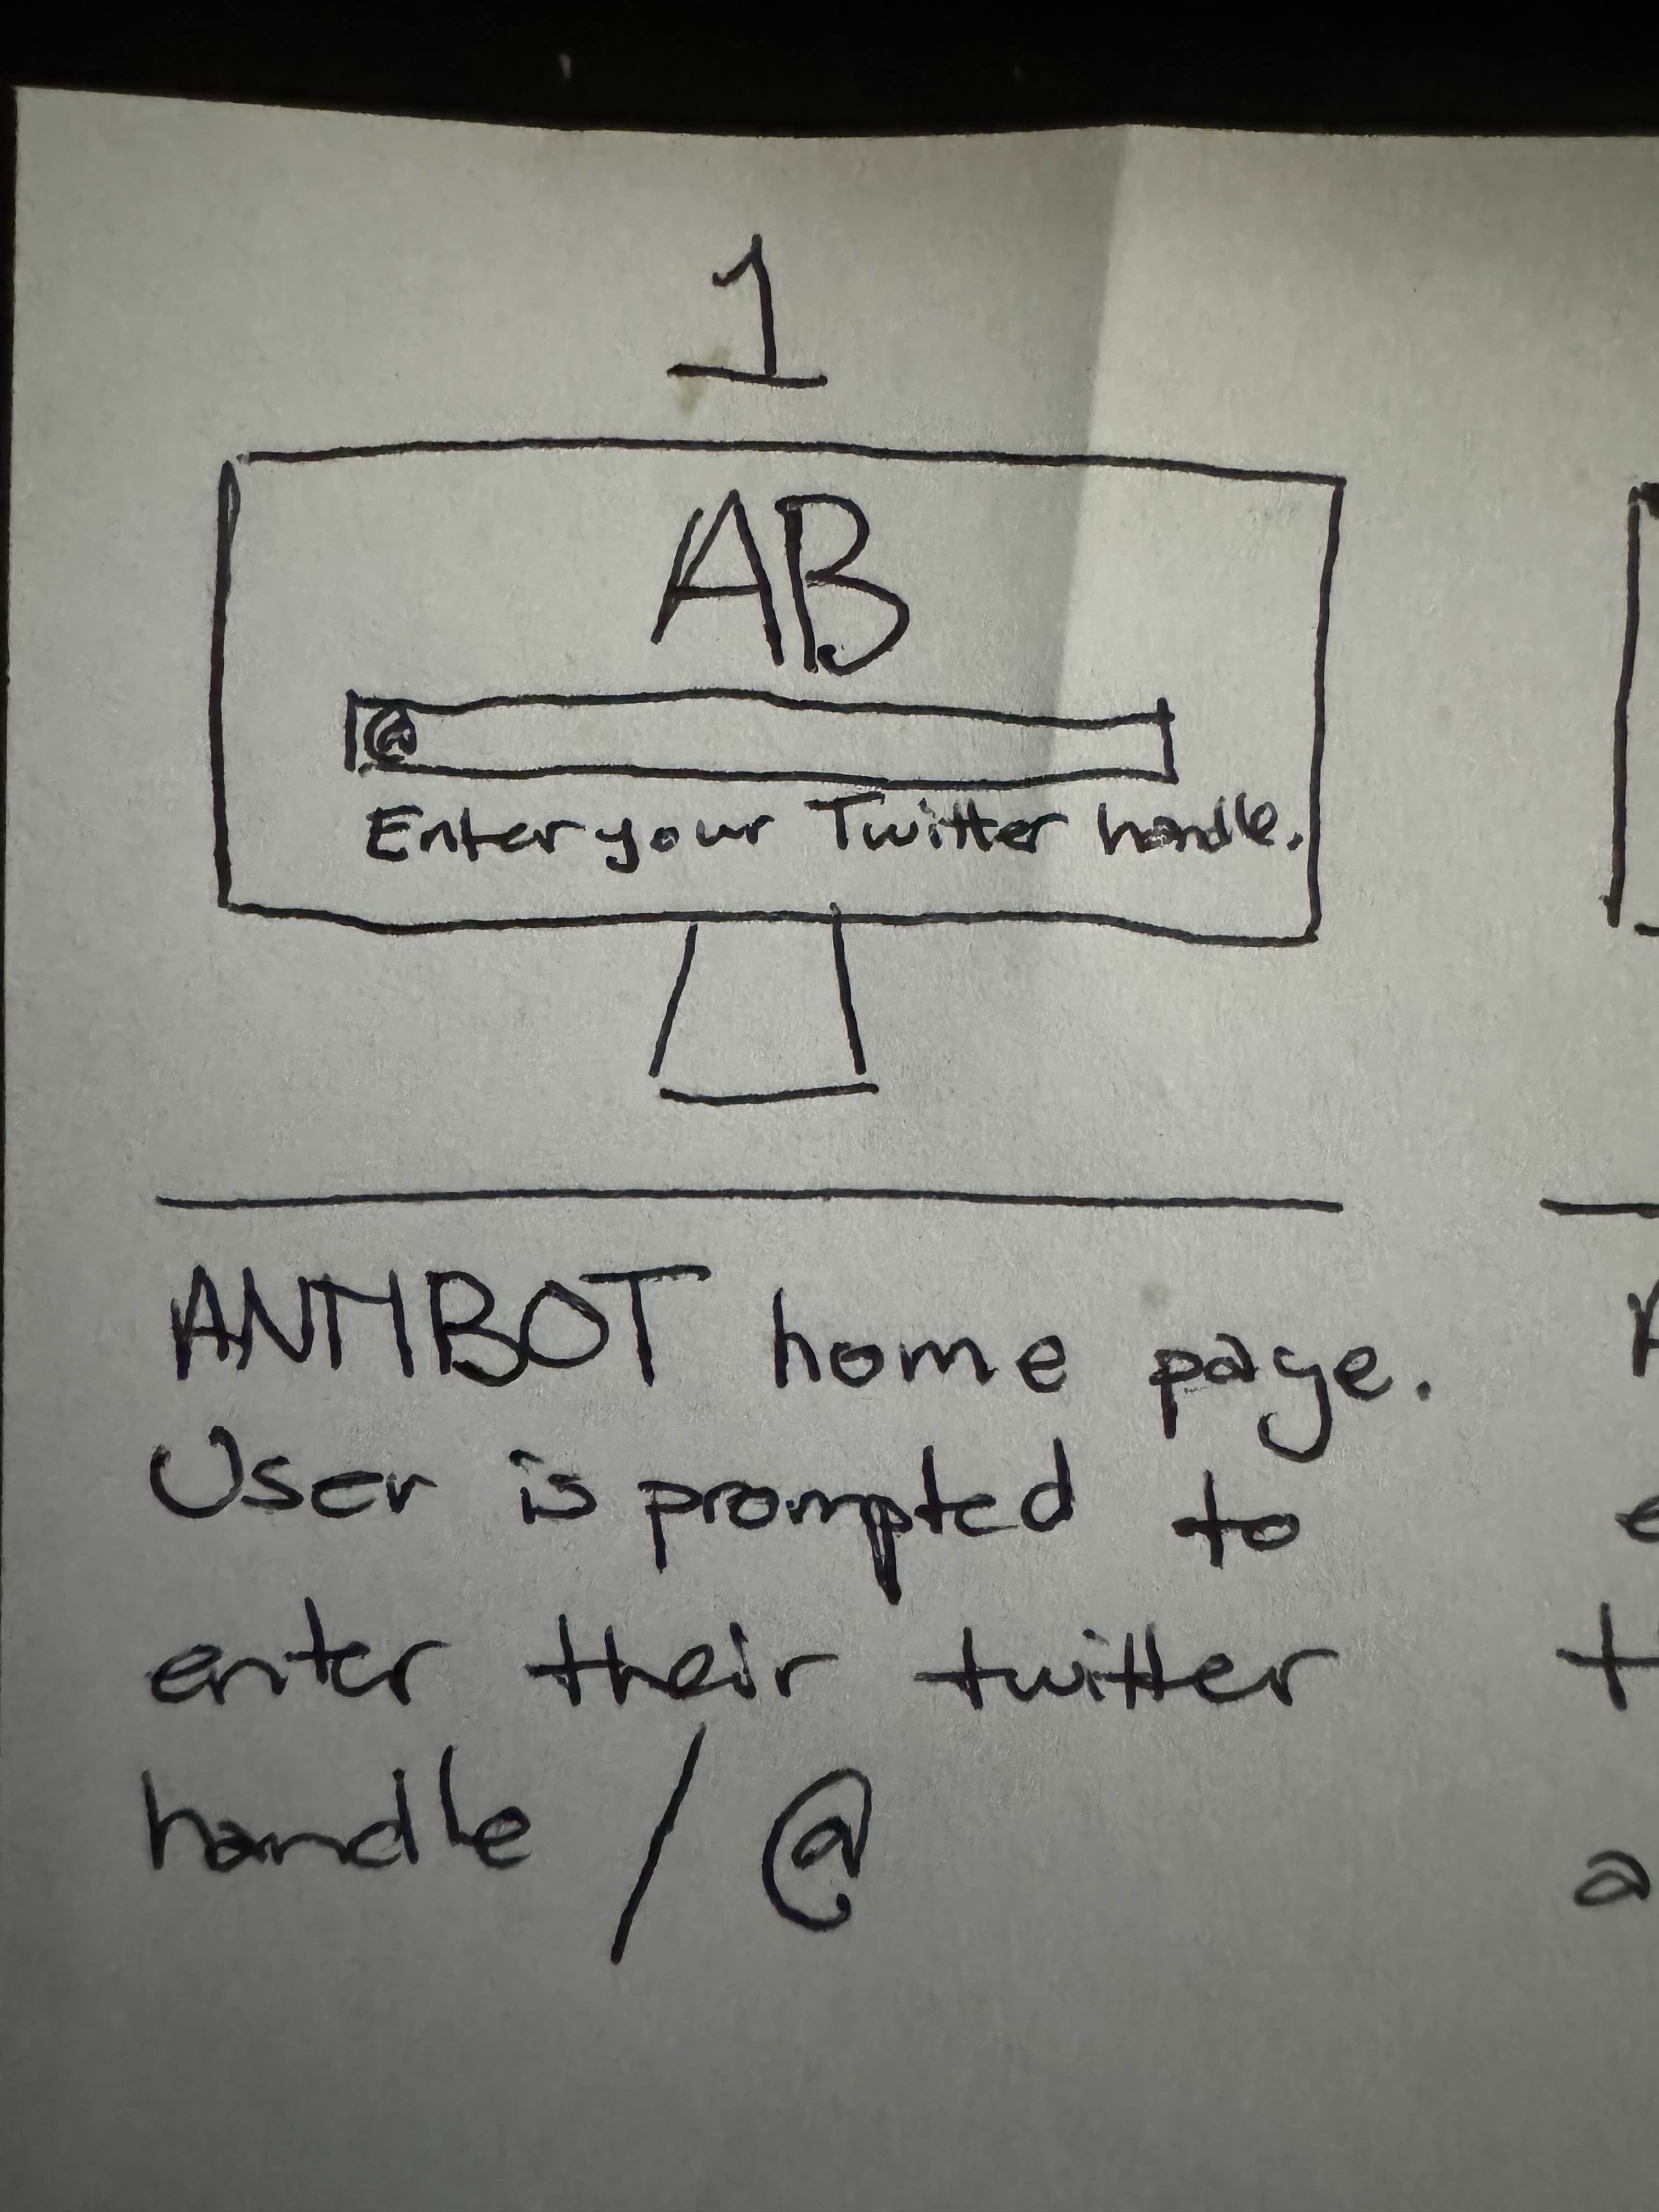 1
AB
@
Enter your Twitter handle.
ANTIBOT home page.
User is prompted to
enter their twitter
handle / @